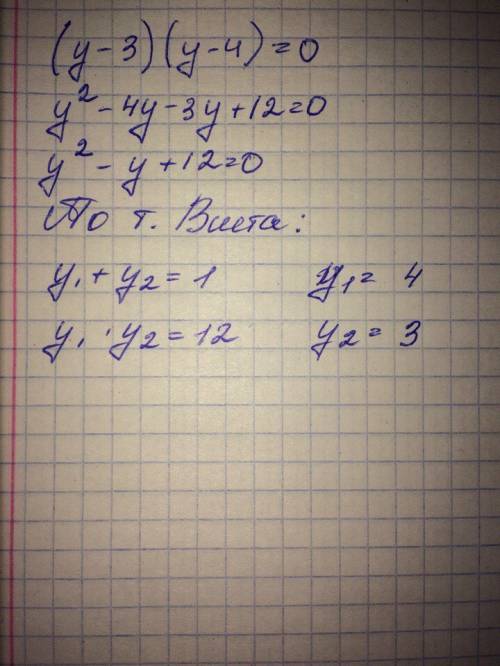 (y-3)(y-4)=0
y²-4y-3y+12=0
y²-y+12=0
По т. Виета:
y₁+y₂=1 y₁=4
y₁·y₂=12 y₂=3